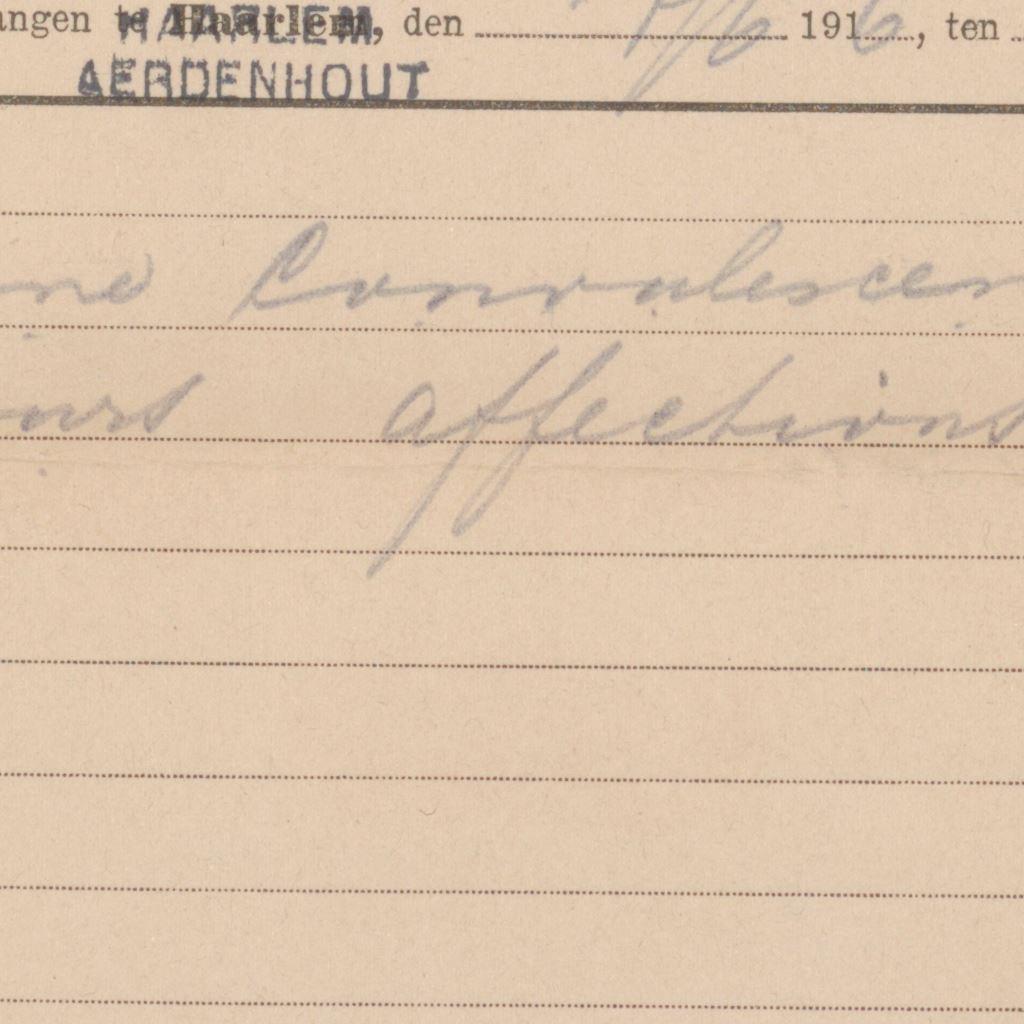 angen te Haarlem, den 1/6 1916, ten
HAARLEM
AERDENHOUT
ne Convalescen
ours affections